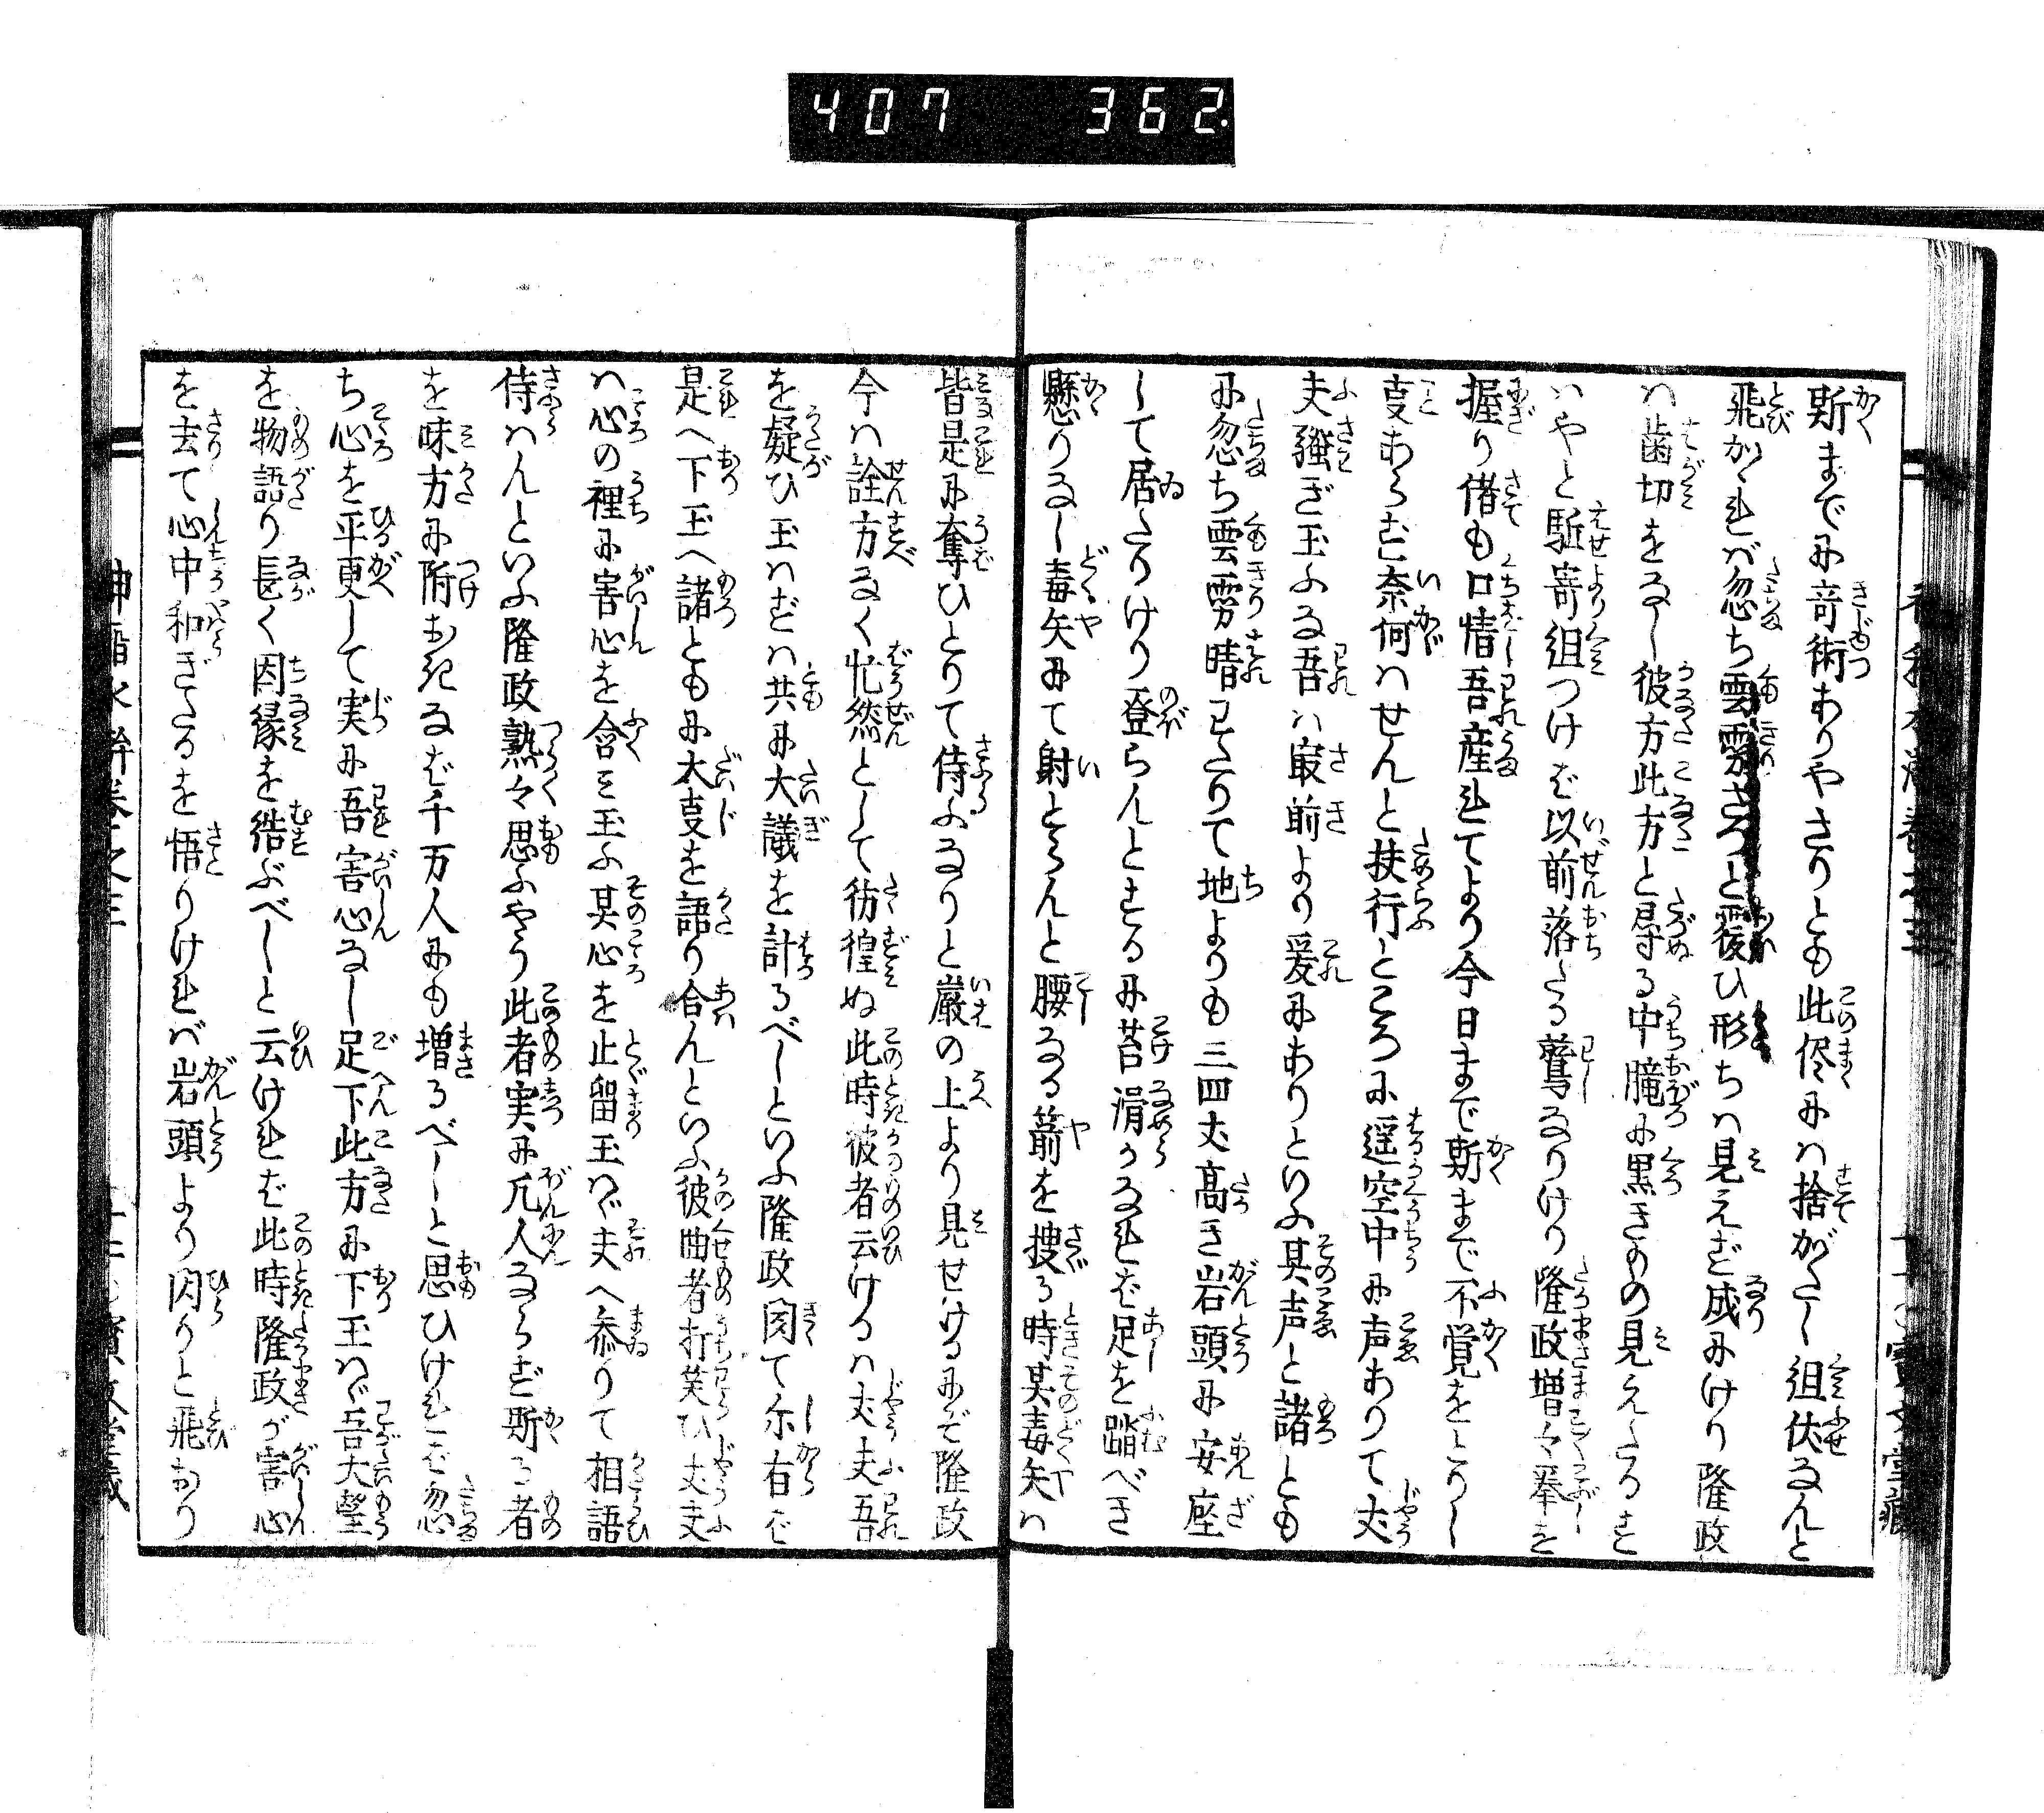 407 362
斯までに奇術ありやさりとも此侭にハ捨がたし組伏なんと
飛かゝれバ忽ち雲雰さつと覆ひ形ちハ見えず成にけり隆政
ハ歯切をなし彼方此方と尋る中朧に黒きもの見えたるす
ハやと駈寄組つけば以前落たる鷲なりけり隆政増々拳を
握り偖も口惜吾産れてより今日まで斯まで不覚をとりし
叓あらず奈何ハせんと扶行ところに遥空中に声ありて丈
夫騒ぎ玉ふな吾ハ最前より爰にありといふ其声と諸とも
に忽ち雲雰晴わたりて地よりも三四丈高き岩頭に安座
して居たりけり登らんとするに苔滑かなれば足を踏べき
懸りなし毒矢にて射とらんと腰なる箭を捜る時其毒矢ハ
皆是に奪ひとりて侍ふなりと巌の上より見せけるにぞ隆政
今ハ詮方なく忙然として彷徨ぬ此時彼者云けるハ丈夫吾
を疑ひ玉ハずハ共に大議を計るべしといふ隆政聞て尓有ば
是へ下玉へ諸ともに大叓を語り合んといふ彼曲者打笑ひ丈夫
ハ心の裡に害心を含ミ玉ふ其心を止留玉ハゞ夫へ参りて相語
侍ハんといふ隆政熟々思ふやう此者実に凡人ならず斯る者
を味方に附おきなば千万人にも増るべしと思ひければ忽
ち心を平更して実に吾害心なし足下此方に下玉ハゞ吾大望
を物語り長く因縁を結ぶべしと云ければ此時隆政が害心
を去て心中和ぎたるを悟りけれバ岩頭より閃りと飛おり
巻之三